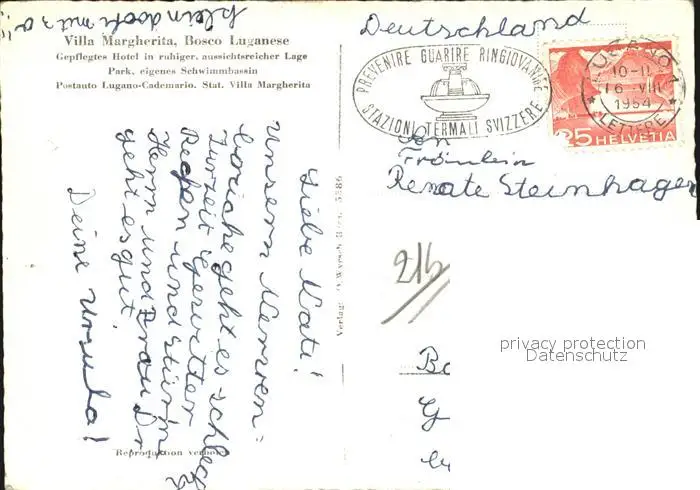 klein doch mit
Villa Margherita, Bosco Luganese
Gepflegtes Hotel in ruhiger, aussichtsreicher Lage
Park, eigenes Schwimmbassin
Postauto Lugano-Cademario. Stat. Villa Margherita
Liebe Nati!
Unsern Nerven
geht es schlecht
Zurzeit Gewitter
Regen und Sturm
Herrn und Frau Dr
geht es gut.
Deine Ursula!
Reproduktion verboten
Verlag
5586
Deutschland
PREVENIRE GUARIRE RINGIOVANIRE
STAZIONI TERMALI SVIZZERE
LUGANO 1
10-11
16. VIII
1954
LETTERE
25 HELVETIA
Fräulein
Renate Steinhagen
21b
privacy protection
Datenschutz